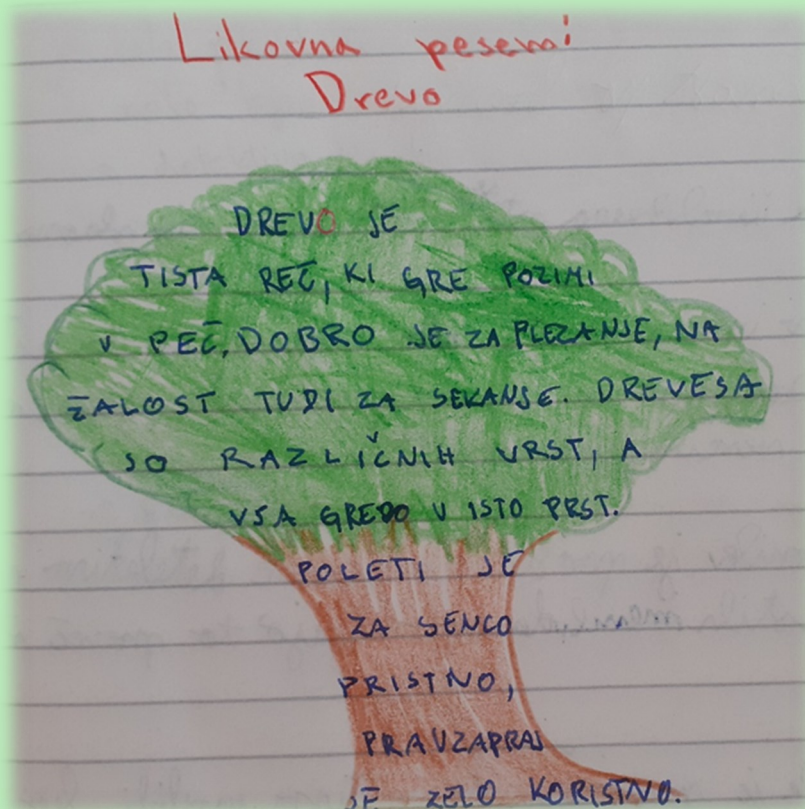 Likovna pesem:
Drevo
DREVO JE
TISTA REČ, KI GRE POZIMI
V PEČ. DOBRO JE ZA PLEZANJE, NA
ŽALOST TUDI ZA SEKANJE. DREVESA
SO RAZLIČNIH VRST, A
VSA GREDO V ISTO PRST.
POLETI JE
ZA SENCO
PRISTNO,
PRAVZAPRAV
JE ZELO KORISTNO.